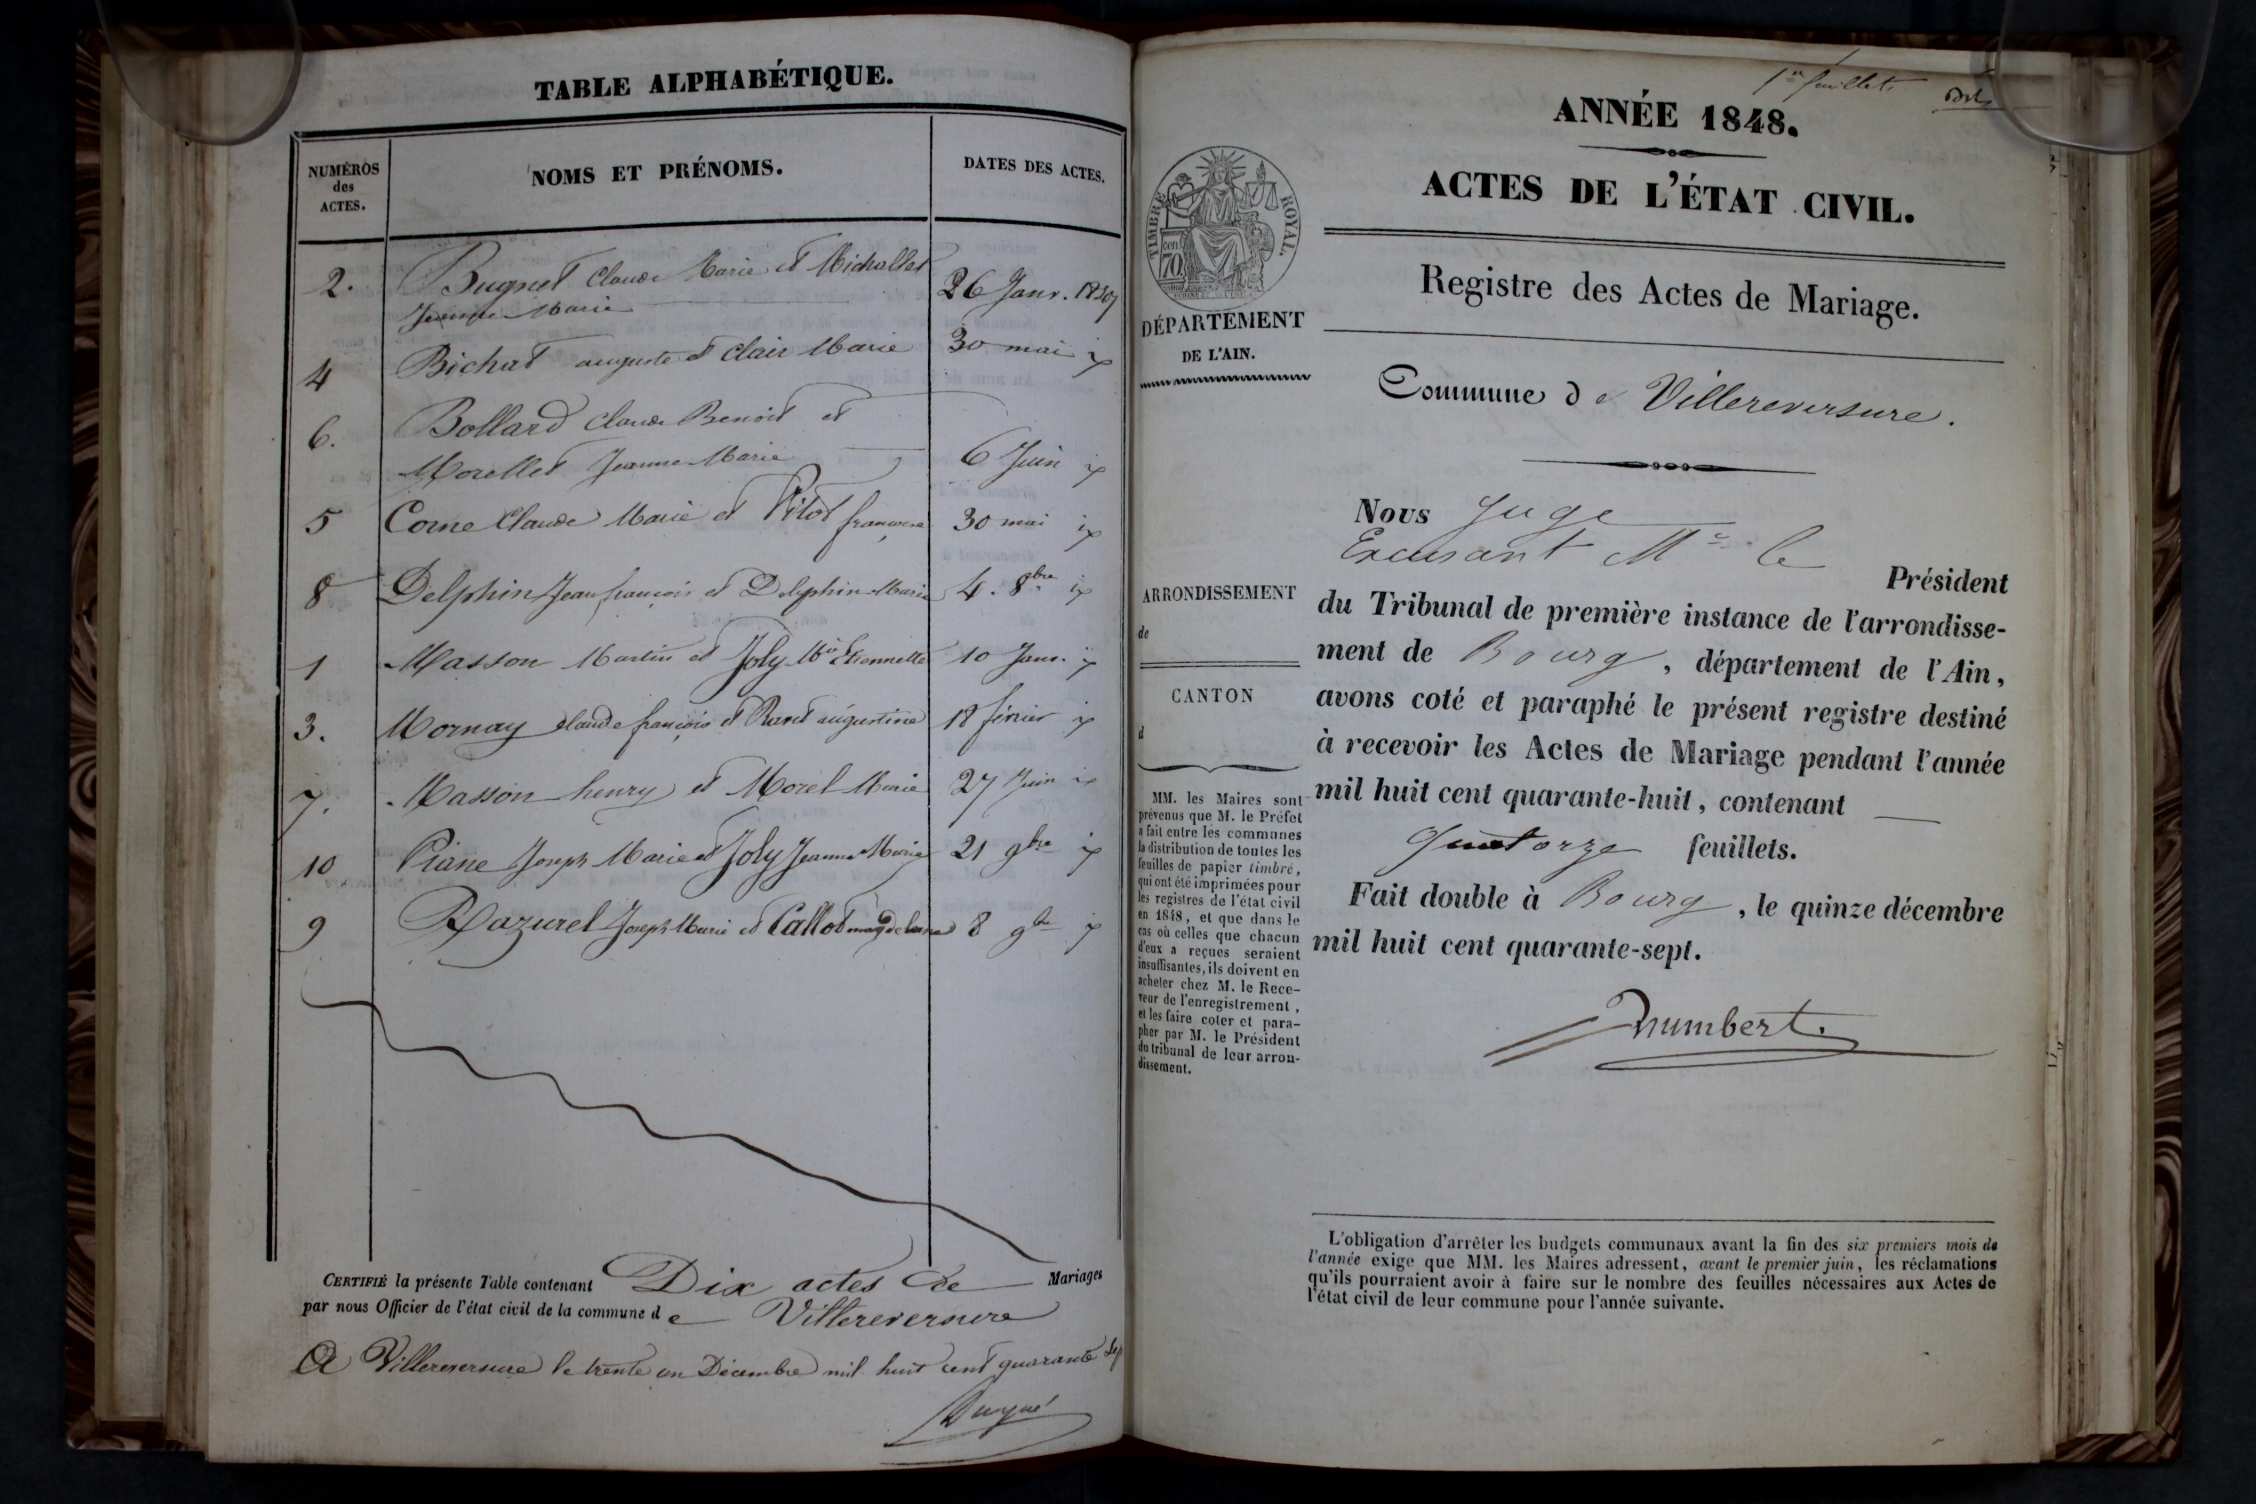 TABLE ALPHABÉTIQUE.
NUMÉROS
des
ACTES.
NOMS ET PRÉNOMS.
DATES DES ACTES.
2. Bugnet Claude Marie et Michallet 26 Janv. 1847
Jeanne Marie
4 Bichat auguste et Clair Marie 30 mai
6. Bollard Claude Benoit et
Morellet Jeanne Marie 6 Juin
5 Corne Claude Marie et Pitot françoise 30 mai
8 Delphin Jean françois et Delphin Marie 4. 8bre
1 Masson Martin et Joly Mie Etiennette 10 Janv.
3. Mornay claude françois et augustine 18 février
7. Masson henry et Morel Marie 27 Juin
10 Piane Joseph Marie et Joly Jeanne Marie 21 9bre
9 Razurel Joseph Marie et Callot magdelaine 8 9bre
CERTIFIÉ la présente Table contenant Dix actes de Mariages
par nous Officier de l'état civil de la commune de Villereversure
A Villereversure le trente un Décembre mil huit cent quarante Sep
1er feuillet
ANNÉE 1848.
ACTES DE L'ÉTAT CIVIL.
Registre des Actes de Mariage.
TIMBRE ROYAL.
70
DÉPARTEMENT
DE L'AIN.
Commune de Villereversure.
ARRONDISSEMENT
de
CANTON
d
MM. les Maires sont
prévenus que M. le Préfet
a fait entre les communes
la distribution de toutes les
feuilles de papier timbré,
qui ont été imprimées pour
les registres de l'état civil
en 1848, et que dans le
cas où celles que chacun
d'eux a reçues seraient
insuffisantes, ils doivent en
acheter chez M. le Rece-
veur de l'enregistrement,
et les faire coter et para-
pher par M. le Président
du tribunal de leur arron-
dissement.
Nous Juge
Excusant Mr le Président
du Tribunal de première instance de l'arrondisse-
ment de Bourg, département de l'Ain,
avons coté et paraphé le présent registre destiné
à recevoir les Actes de Mariage pendant l'année
mil huit cent quarante-huit, contenant
Quatorze feuillets.
Fait double à Bourg, le quinze décembre
mil huit cent quarante-sept.
L'obligation d'arrêter les budgets communaux avant la fin des six premiers mois de
l'année exige que MM. les Maires adressent, avant le premier juin, les réclamations
qu'ils pourraient avoir à faire sur le nombre des feuilles nécessaires aux Actes de
l'état civil de leur commune pour l'année suivante.